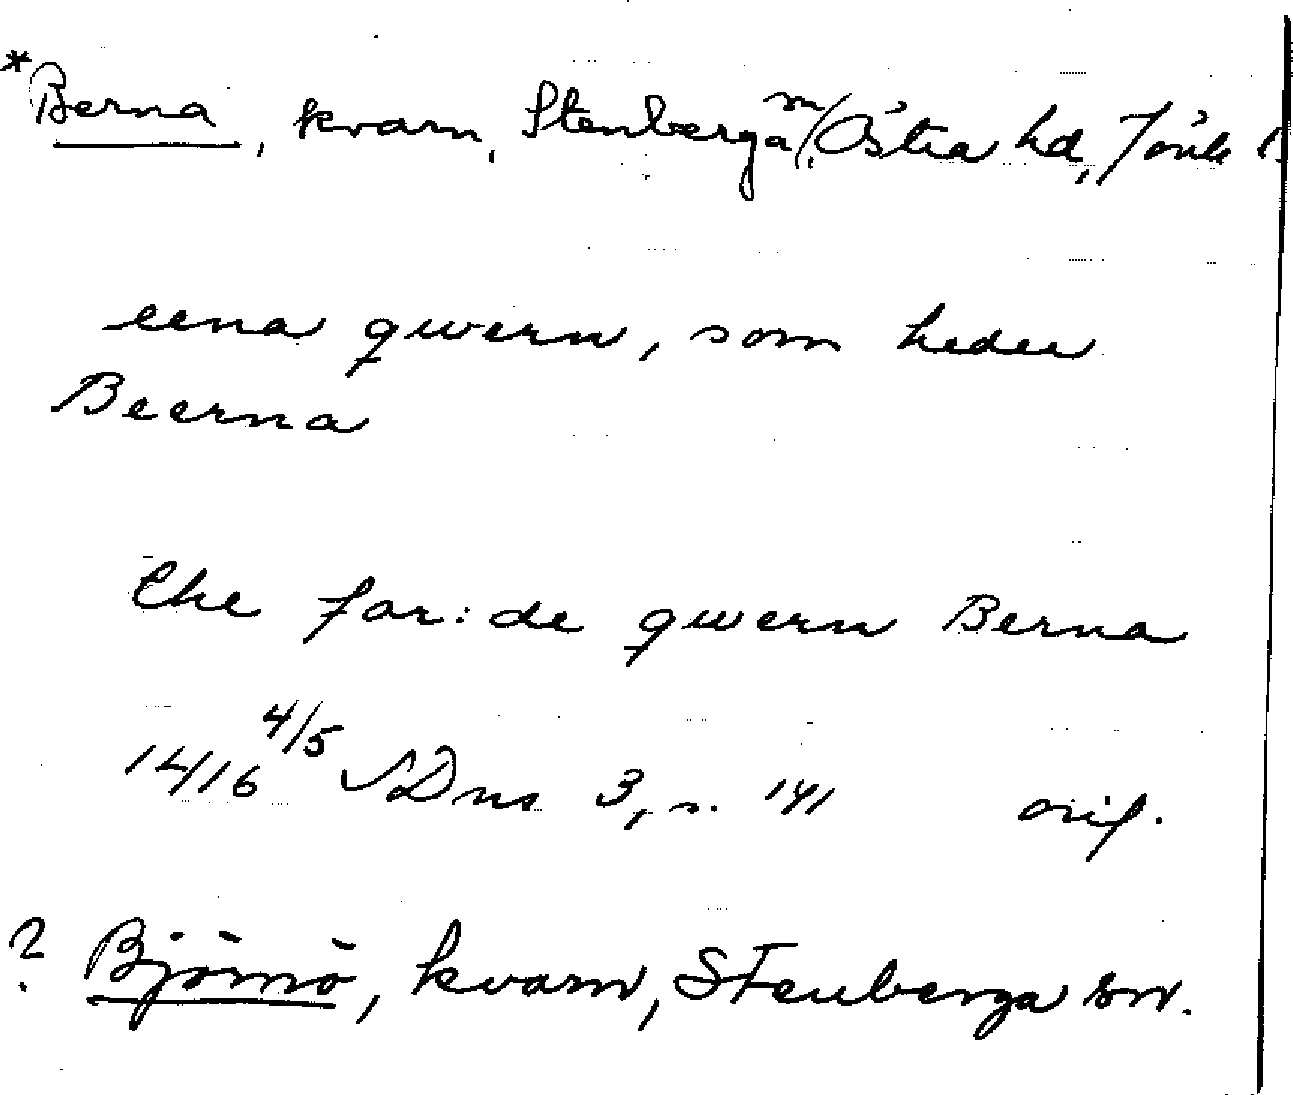 *Berna, kvarn, Stenberga sn, Östra hd, Jönk l.
eena qwern, som heder
Beerna
the for:de qwern Berna
1416 4/5 SDns 3, s. 141 orig.
? Björnö, kvarn, Stenberga sn.